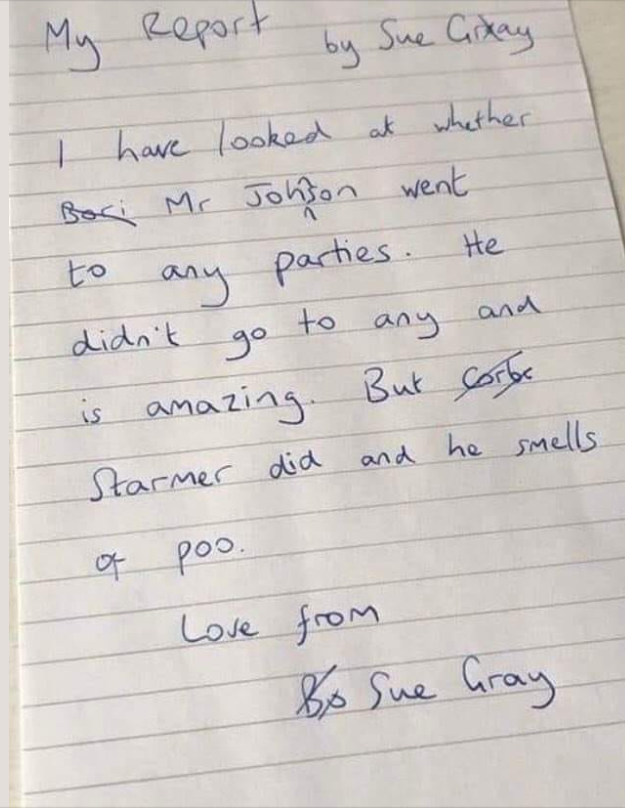 My Report
by Sue Gray
I have looked at whether
Bori Mr Johnson went
to any parties. He
didn't go to any and
is amazing. But Corbc
Starmer did and he smells
of poo.
Love from
Bo Sue Gray